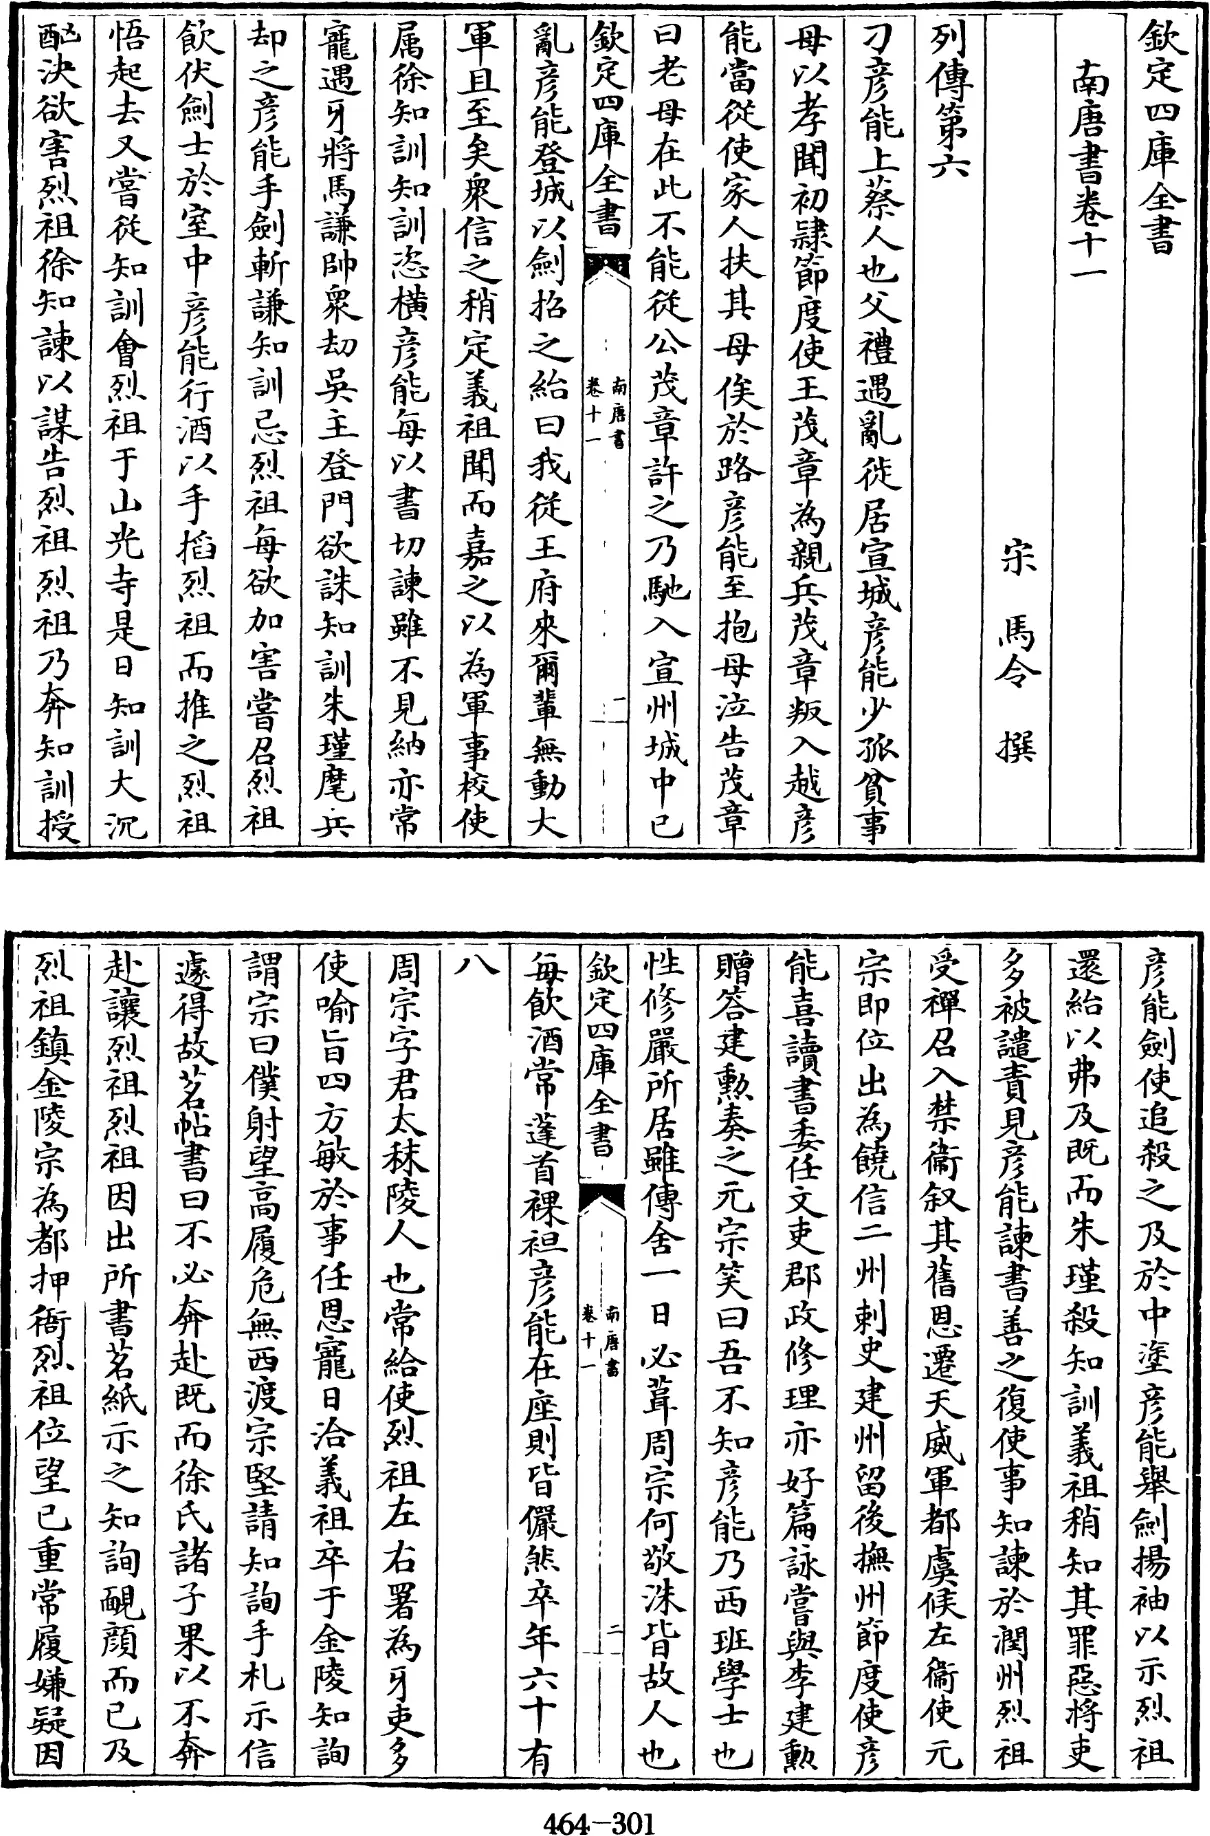 欽定四庫全書
南唐書卷十一
宋　馬令　撰
列傳第六
刁彦能上蔡人也父禮遇亂徙居宣城彦能少孤貧事
母以孝聞初隷節度使王茂章為親兵茂章叛入越彦
能當從使家人扶其母俟於路彦能至抱母泣告茂章
曰老母在此不能從公茂章許之乃馳入宣州城中已
欽定四庫全書
南唐書
卷十一
一
亂彦能登城以劍招之紿曰我從王府來爾輩無動大
軍且至矣衆信之稍定義祖聞而嘉之以為軍事校使
属徐知訓知訓恣橫彦能每以書切諫雖不見納亦常
寵遇牙將馬謙帥衆刼吳主登門欲誅知訓朱瑾麾兵
却之彦能手劍斬謙知訓忌烈祖每欲加害嘗召烈祖
飲伏劍士於室中彦能行酒以手搯烈祖而推之烈祖
悟起去又嘗從知訓會烈祖于山光寺是日知訓大沉
酗決欲害烈祖徐知諫以謀告烈祖烈祖乃奔知訓授
彦能劍使追殺之及於中塗彦能舉劍揚袖以示烈祖
還紿以弗及既而朱瑾殺知訓義祖稍知其罪惡將吏
多被譴責見彦能諫書善之復使事知諫於潤州烈祖
受禪召入禁衞叙其舊恩遷天威軍都虞候左衞使元
宗即位出為饒信二州刺史建州留後撫州節度使彦
能喜讀書委任文吏郡政修理亦好篇詠嘗與李建勲
贈答建勲奏之元宗笑曰吾不知彦能乃西班學士也
性修嚴所居雖傳舍一日必葺周宗何敬洙皆故人也
欽定四庫全書
南唐書
卷十一
二
每飲酒常蓬首裸袒彦能在座則皆儼然卒年六十有
八
周宗字君太秣陵人也常給使烈祖左右署為牙吏多
使喻旨四方敏於事任恩寵日洽義祖卒于金陵知詢
謂宗曰僕射望高履危無西渡宗堅請知詢手札示信
遽得故茗帖書曰不必奔赴既而徐氏諸子果以不奔
赴讓烈祖烈祖因出所書茗紙示之知詢靦顔而已及
烈祖鎮金陵宗為都押衙烈祖位望已重常履嫌疑因
464-301